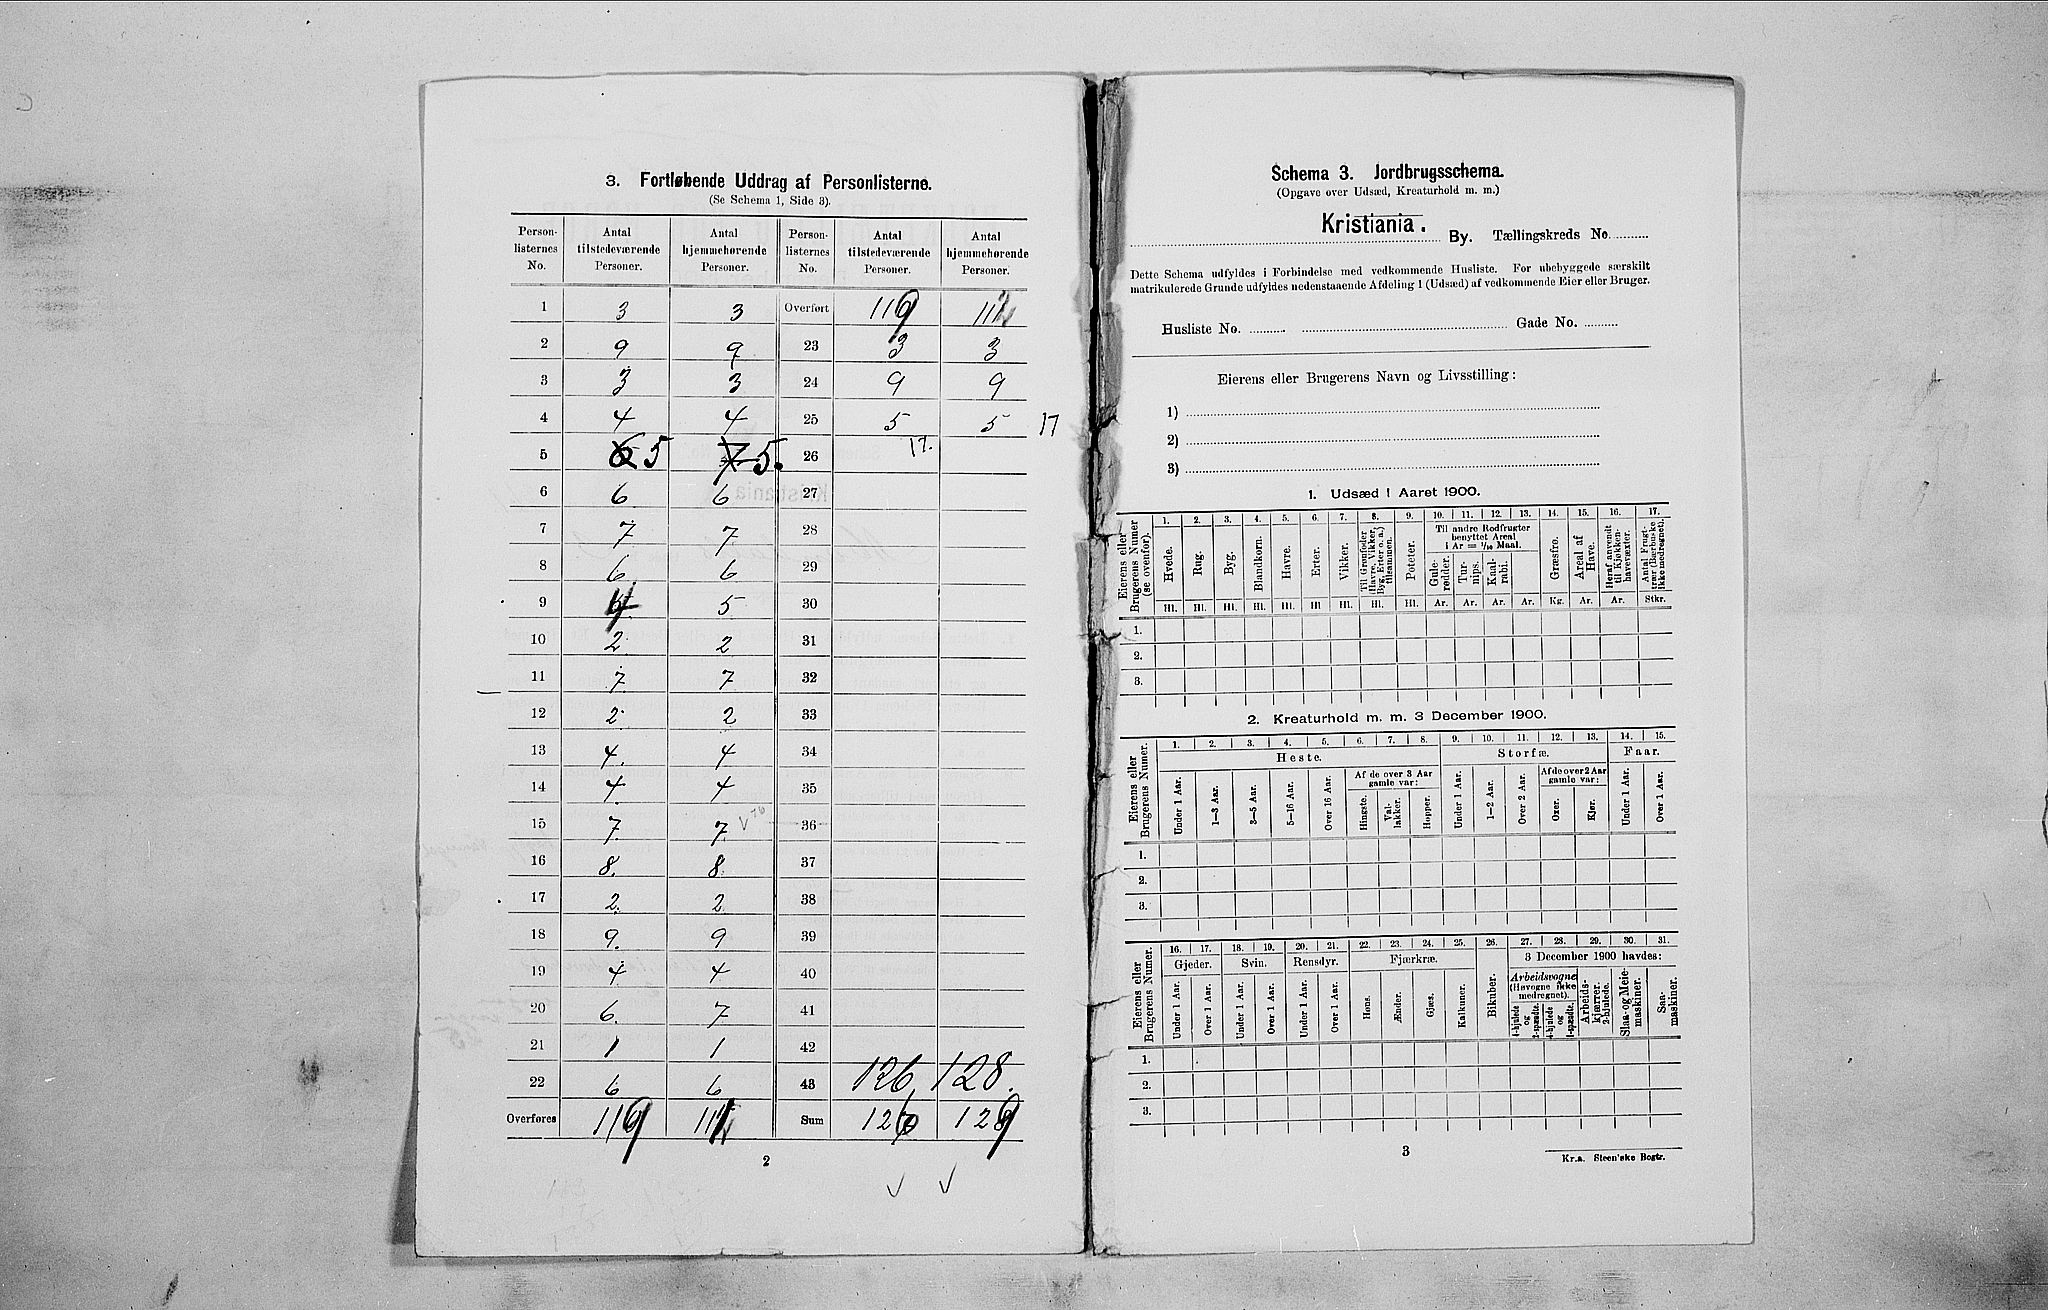 3. Fortløbende Uddrag af Personlisterne.
(Se Schema 1, Side 3).
Person-listernes No. Antal tilstedeværende Personer. Antal hjemmehørende Personer. Person-listernes No. Antal tilstedeværende Personer. Antal hjemmehørende Personer.
1 3 3 Overført
2 9 9 23 3 3
3 3 3 24 9 9
4 4 4 25 5 5 17
5 6 5 7 5. 26 17.
6 6 6 27
7 7 7 28
8 6. 6 29
9 5 30
10 2. 2 31
11 7. 7 32
12 2 2 33
13 4. 4 34
14 4. 4 35
15 7. 7. 36
16 8. 8. 37
17 2. 2 38
18 9. 9 39
19 4 4 40
20 6. 7 41
21 1 1 42
22 6 6 43 126. 128.
Overføres Sum
2
Schema 3. Jordbrugsschema.
(Opgave over Udsæd, Kreaturhold m. m.)
Kristiania. By. Tællingskreds No.
Dette Schema udfyldes i Forbindelse med vedkommende Husliste. For ubebyggede særskilt
matrikulerede Grunde udfyldes nedenstaaende Afdeling 1 (Udsæd) af vedkommende Eier eller Bruger.
Husliste No. Gade No.
Eierens eller Brugerens Navn og Livsstilling:
1)
2)
3)
1. Udsæd i Aaret 1900.
Eierens eller Brugerens Numer (se ovenfor).
1. 2. 3. 4. 5. 6. 7. 8. 9. 10. 11. 12. 13. 14. 15. 16. 17.
Hvede. Rug. Byg. Blandkorn. Havre. Erter. Vikker. Til Grønfoder (Havre, Vikker, Byg, Erter o. a.) tilsammen. Poteter. Til andre Rodfrugter benyttet Areal i Ar = 1/10 Maal. Gule-rødder. Tur-nips. Kaal-rabi. Græsfrø. Areal af Have. Heraf anvendt til Kjøkken-havevæxter. Antal Frugt-trær (bærbuske ikke medregnet).
Hl. Hl. Hl. Hl. Hl. Hl Hl. Hl. Hl. Ar. Ar. Ar. Ar. Kg. Ar. Ar. Stkr.
1.
2.
3.
2. Kreaturhold m. m. 3 December 1900.
Eierens eller Brugerens Numer.
1. 2. 3. 4. 5. 6. 7. 8. 9. 10. 11. 12. 13. 14. 15.
Heste. Storfæ. Faar.
Under 1 Aar. 1–3 Aar. 3–5 Aar. 5–16 Aar. Over 16 Aar. Af de over 3 Aar gamle var: Hingste. Val-lakker. Hopper. Under 1 Aar. 1–2 Aar. Over 2 Aar. Af de over 2 Aar gamle var: Oxer. Kjør. Under 1 Aar. Over 1 Aar.
1.
2.
3.
Eierens eller Brugerens Numer.
16. 17. 18. 19. 20. 21. 22. 23. 24. 25. 26. 27. 28. 29. 30. 31.
Gjeder. Svin. Rensdyr. Fjærkræ. Bikuber. 3 December 1900 havdes:
Under 1 Aar. Over 1 Aar. Under 1 Aar. Over 1 Aar. Under 1 Aar. Over 1 Aar. Høns. Ænder. Gjæs. Kalkuner. Arbeidsvogne (Høvogne ikke medregnet). 4-hjulede og 2-spændte. 4-hjulede og 1-spændte. Arbeids-kjærrer. 2-hjulede. Slaa- og Meie-maskiner. Saa-maskiner.
1.
2.
3.
3
Kr.a. Steen'ske Bogtr.